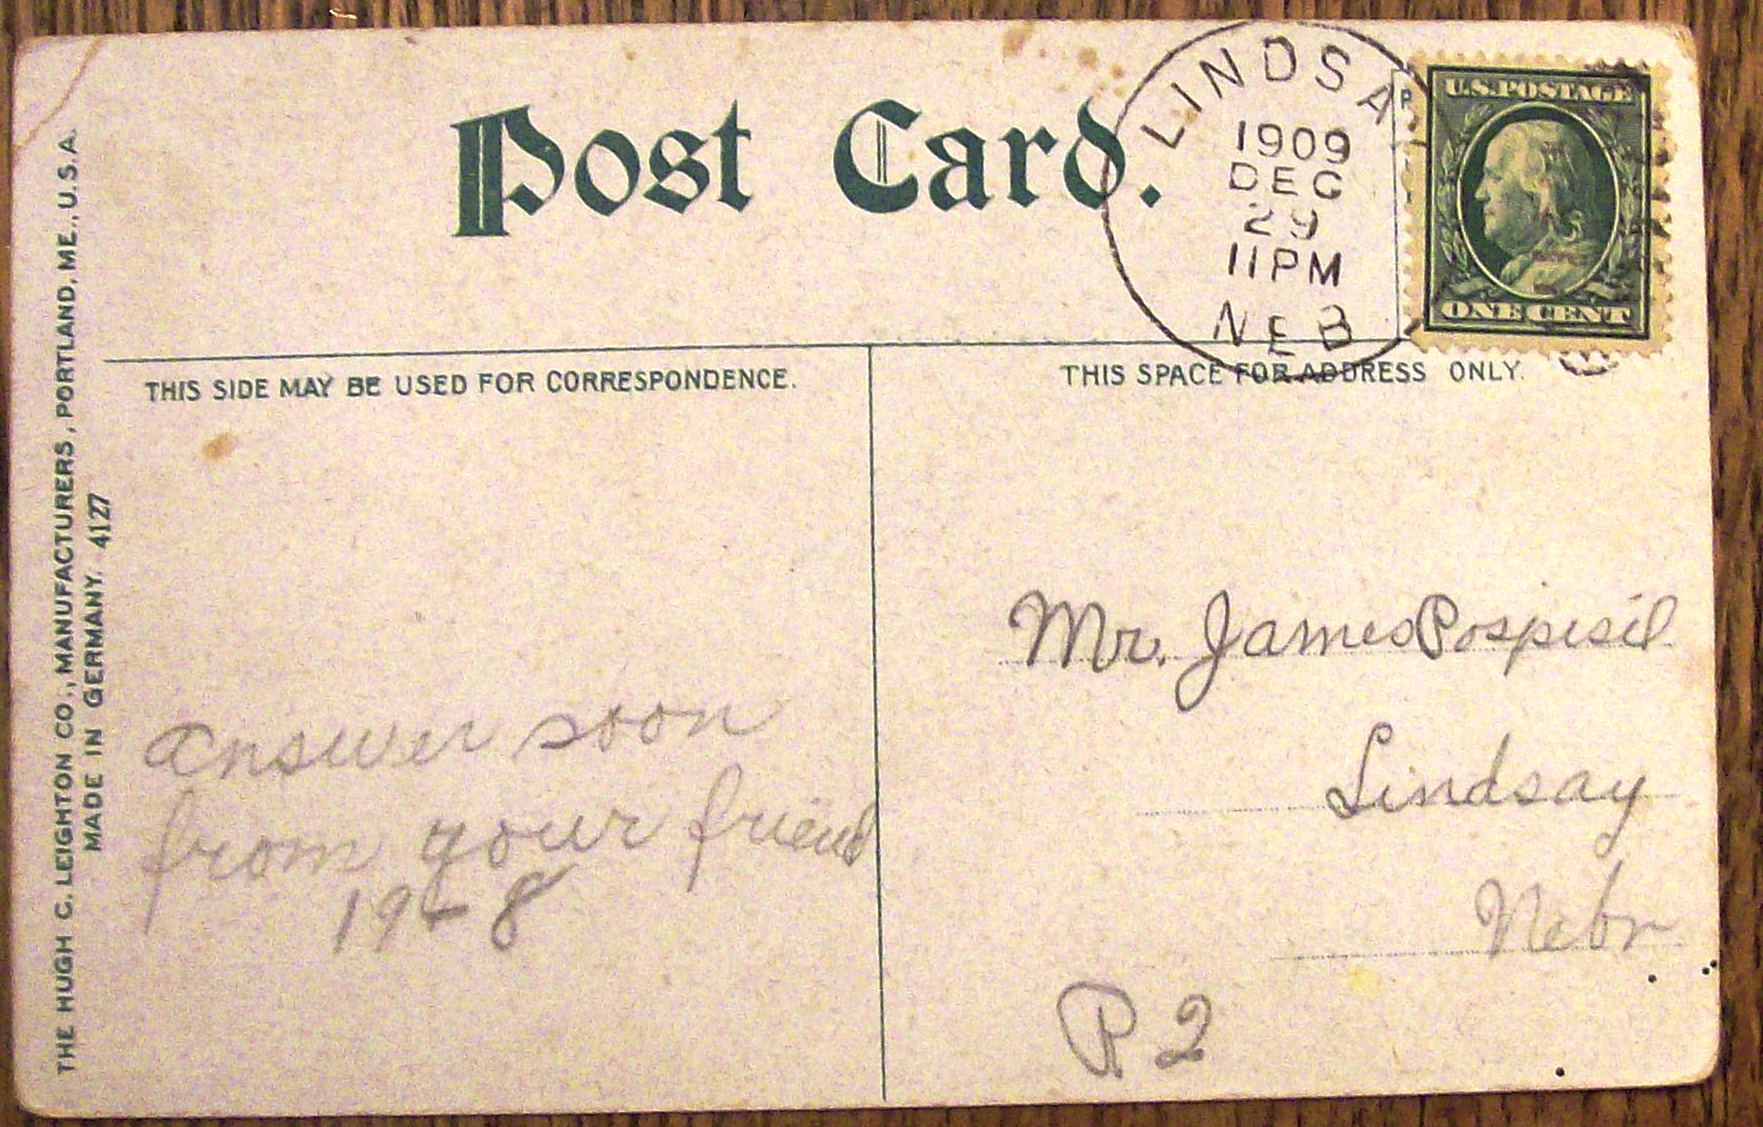 Post Card.
LINDSA
1909
DEC
29
11PM
NEB
U.S.POSTAGE
ONE CENT
THIS SIDE MAY BE USED FOR CORRESPONDENCE.
THIS SPACE FOR ADDRESS ONLY.
THE HUGH C. LEIGHTON CO., MANUFACTURERS, PORTLAND, ME., U.S.A.
MADE IN GERMANY. 4127
answer soon
from your friend
Mr. James Pospisil
Lindsay
Nebr
R 2